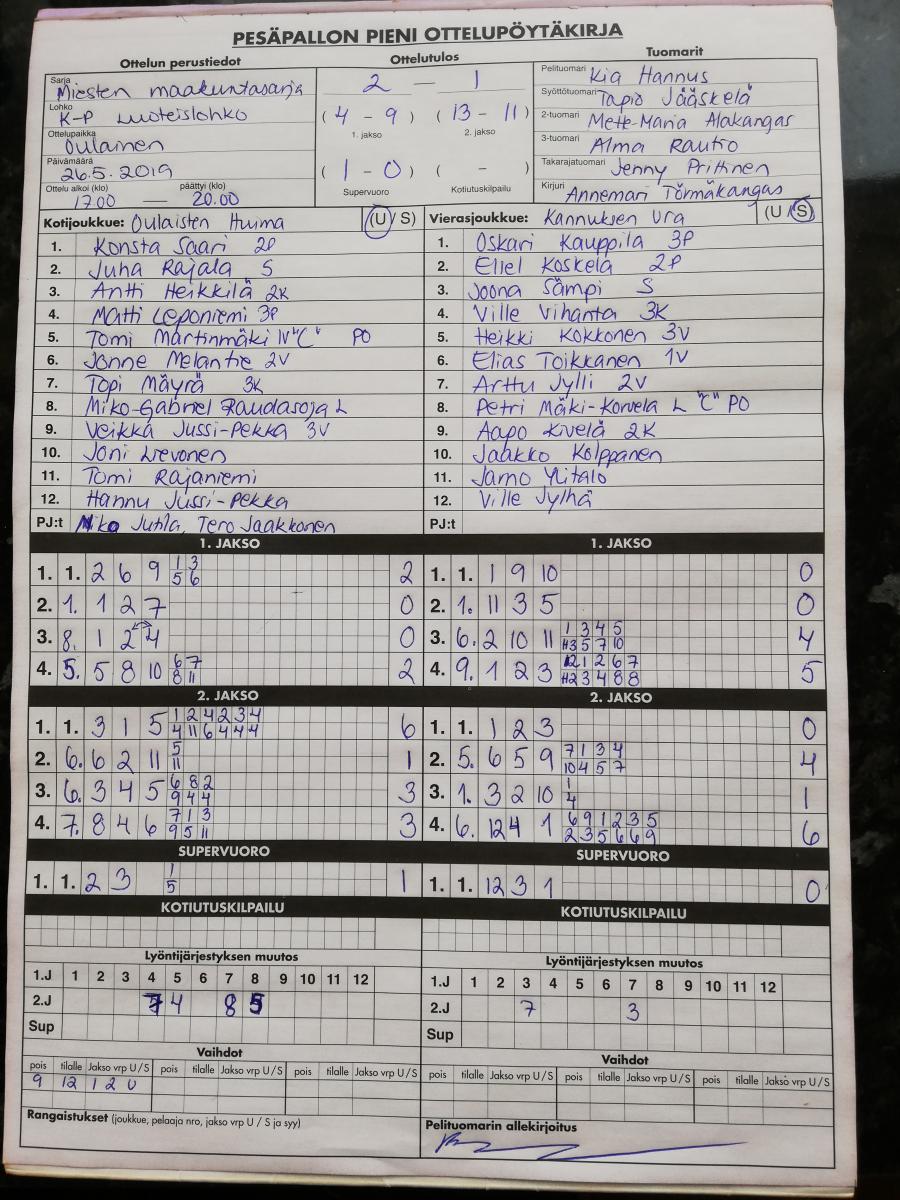 PESÄPALLON PIENI OTTELUPÖYTÄKIRJA
Ottelun perustiedot Ottelutulos Tuomarit
Sarja Miesten maakuntasarja
Lohko K-P Luoteislohko
Ottelupaikka Oulainen
Päivämäärä 26.5.2019
Ottelu alkoi (klo) päättyi (klo)
17.00 — 20.00
2 — 1
(4 - 9) (13 - 11)
1. jakso 2. jakso
(1 - 0) ( - )
Supervuoro Kotiutuskilpailu
Pelituomari Kia Hannus
Syöttötuomari Tapio Jääskelä
2-tuomari Mette-Maria Alakangas
3-tuomari Alma Rautio
Takarajatuomari Jenny Prittinen
Kirjuri Annemari Törmäkangas
Kotijoukkue: Oulaisten Huima (U/S)
1. Konsta Saari 2P
2. Juha Rajala S
3. Antti Heikkilä 2K
4. Matti Leponiemi 3P
5. Tomi Martinmäki 1V "C" PO
6. Jonne Melantie 2V
7. Topi Mäyrä 3K
8. Miko-Gabriel Raudasoja L
9. Veikka Jussi-Pekka 3V
10. Joni Lievonen
11. Tomi Rajaniemi
12. Hannu Jussi-Pekka
PJ:t Niko Juhla, Tero Jaakkonen
Vierasjoukkue: Kannuksen Ura (U/S)
1. Oskari Kauppila 3P
2. Eliel Koskela 2P
3. Joona Sämpi S
4. Ville Vihanta 3K
5. Heikki Kokkonen 3V
6. Elias Toikkanen 1V
7. Arttu Jylli 2V
8. Petri Mäki-Korvela L "C" PO
9. Aapo Kivelä 2K
10. Jaakko Kolppanen
11. Jarno Ylitalo
12. Ville Jylhä
PJ:t
1. JAKSO
1. 1. 2 6 9 1 3 2
5 6
2. 1. 1 2 7 0
3. 8. 1 2 4 0
4. 5. 5 8 10 6 7 2
8 11
2. JAKSO
1. 1. 3 1 5 1 2 4 2 3 4 6
4 11 6 4 4 4
2. 6. 6 2 11 5 1
11
3. 6. 3 4 5 6 8 2 3
9 4 4
4. 7. 8 4 6 7 1 3 3
9 5 11
SUPERVUORO
1. 1. 2 3 1 1
5
KOTIUTUSKILPAILU
1. JAKSO
1. 1. 1 9 10 0
2. 1. 11 3 5 0
3. 6. 2 10 11 1 3 4 5 4
3 5 7 10
4. 9. 1 2 3 1 2 6 7 5
3 4 8 8
2. JAKSO
1. 1. 1 2 3 0
2. 5. 6 5 9 7 1 3 4 4
10 4 5 7
3. 1. 3 2 10 1 1
4
4. 6. 12 4 1 6 9 1 2 3 5 6
2 3 5 6 6 9
SUPERVUORO
1. 1. 12 3 1 0
KOTIUTUSKILPAILU
Lyöntijärjestyksen muutos
1.J 1 2 3 4 5 6 7 8 9 10 11 12
2.J 7 4 8 5
Sup
Vaihdot
pois tilalle Jakso vrp U/S pois tilalle Jakso vrp U/S pois tilalle Jakso vrp U/S
9 12 1 2 U
Rangaistukset (joukkue, pelaaja nro, jakso vrp U / S ja syy)
Lyöntijärjestyksen muutos
1.J 1 2 3 4 5 6 7 8 9 10 11 12
2.J 7 3
Sup
Vaihdot
pois tilalle Jakso vrp U/S pois tilalle Jakso vrp U/S pois tilalle Jakso vrp U/S
Pelituomarin allekirjoitus